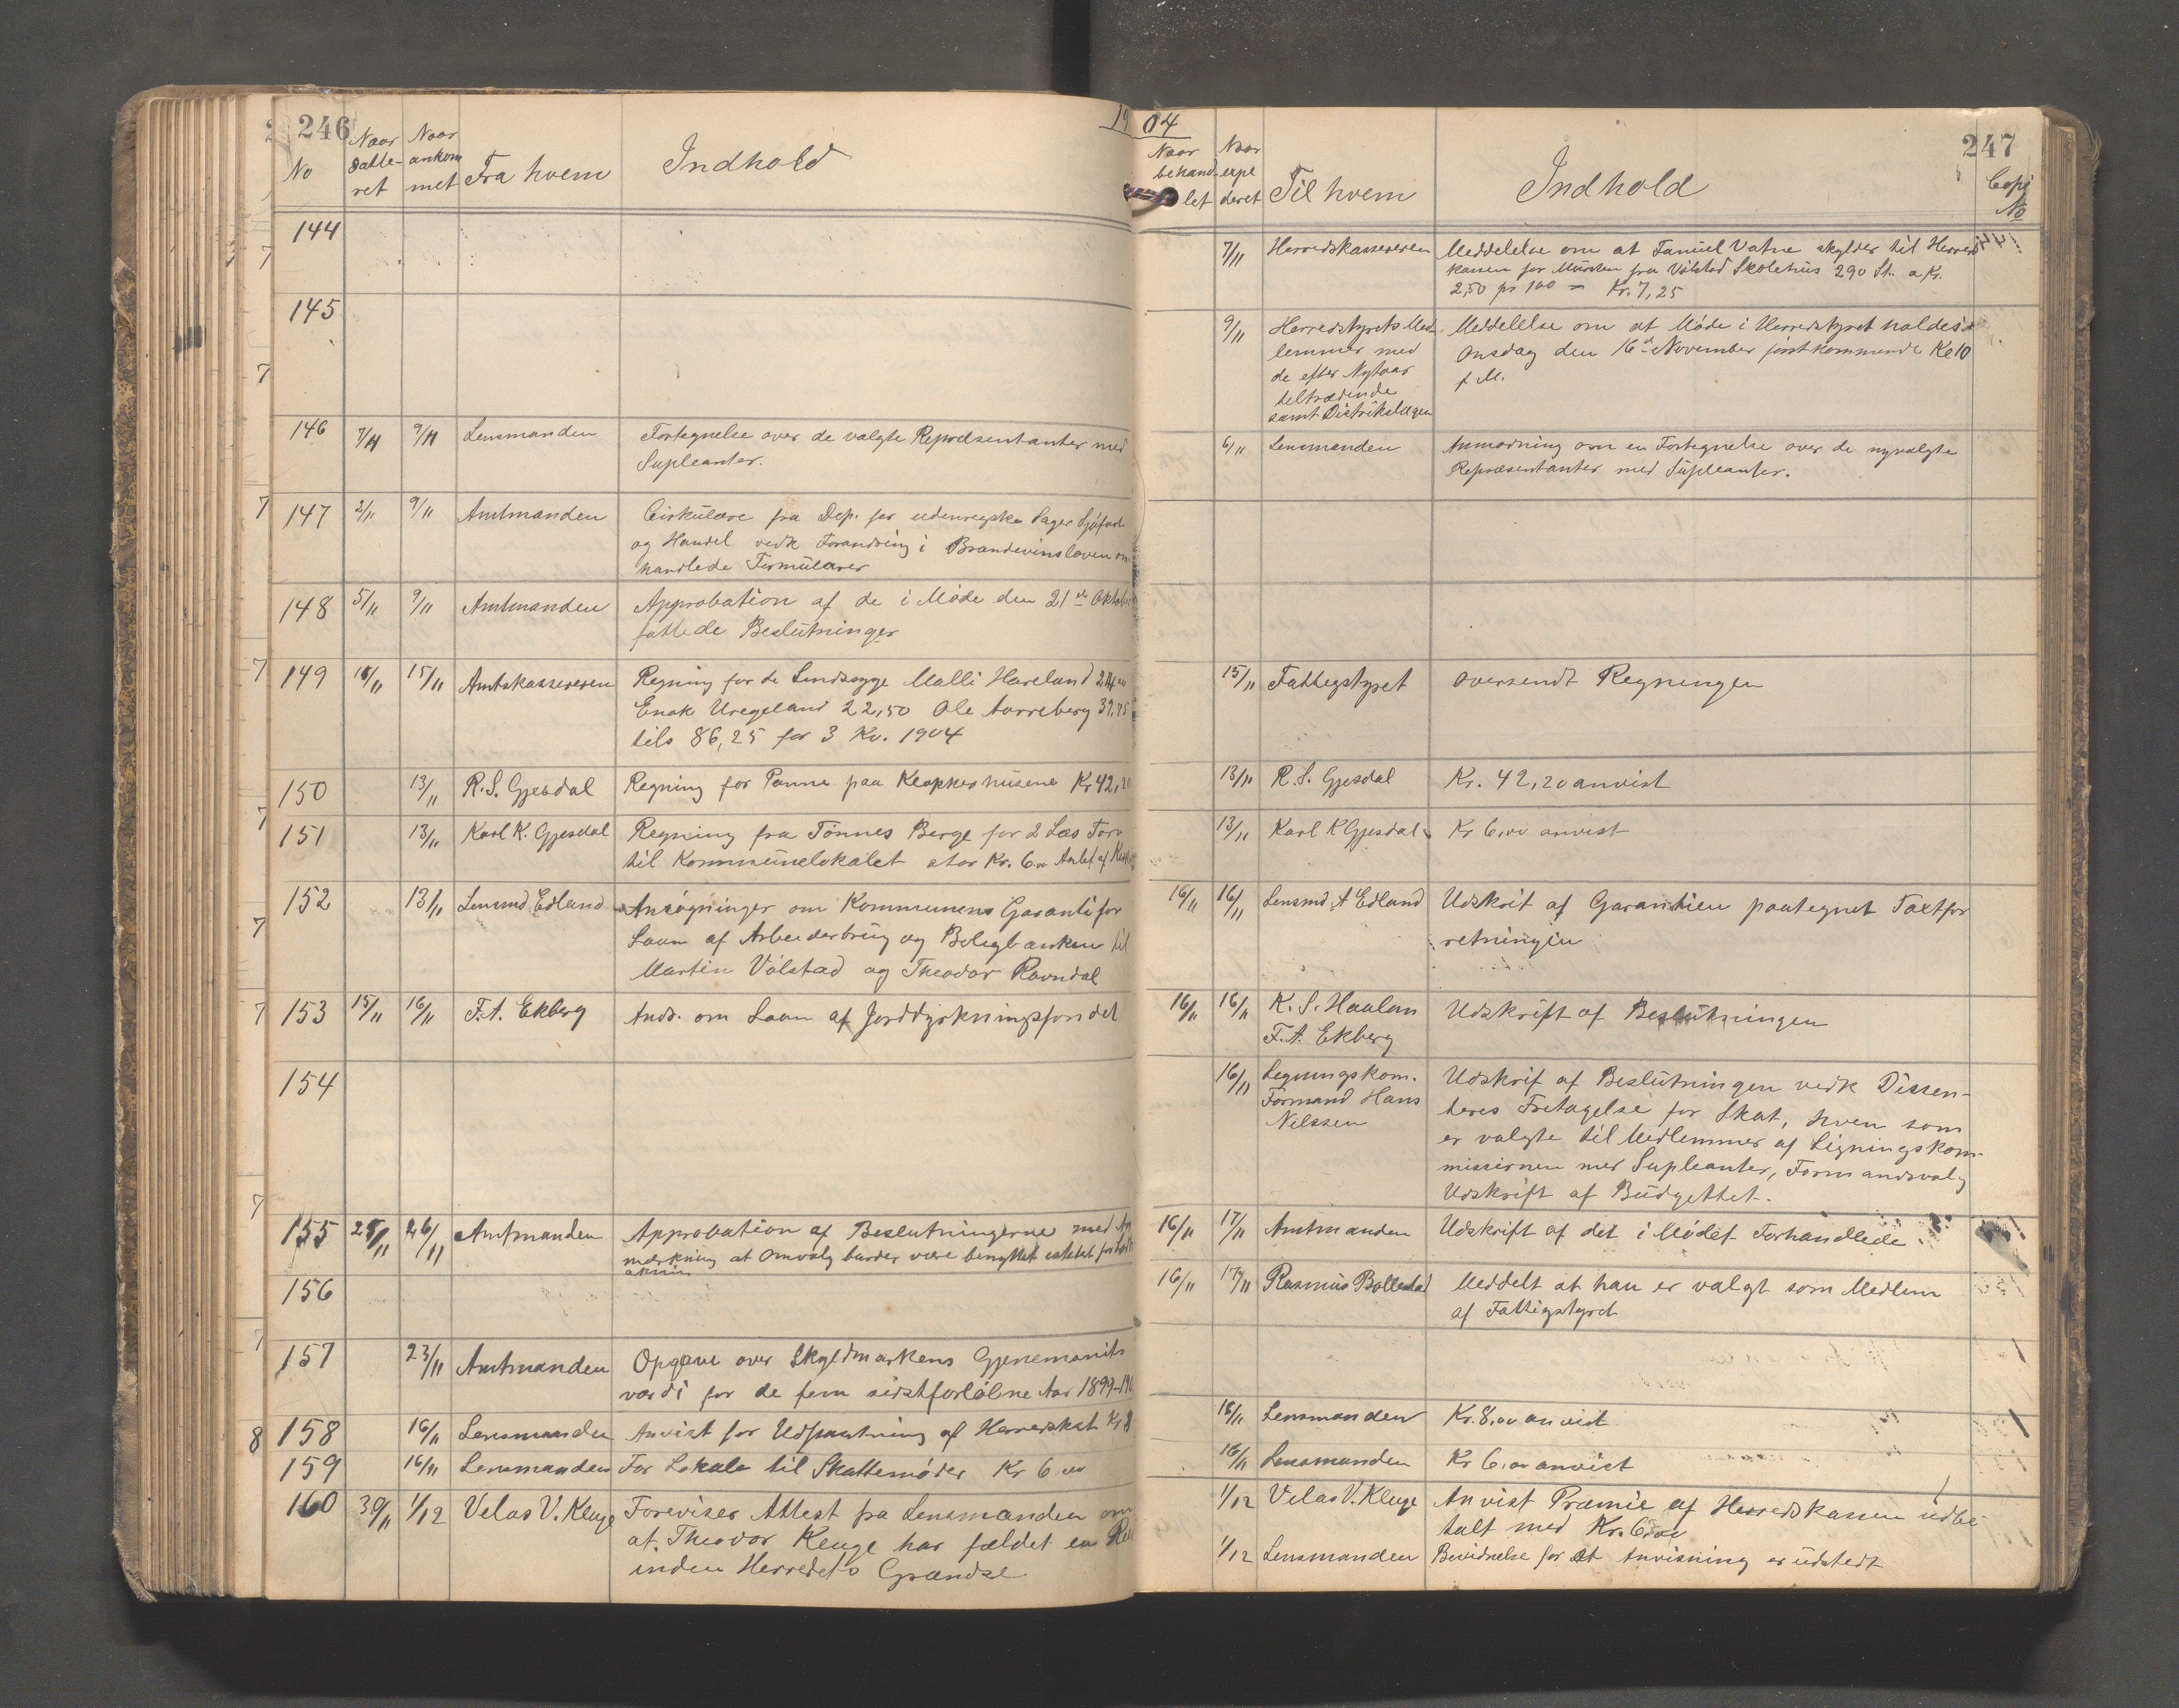 246
1904
247
No
Naar datteret
Naar ankommet
Fra hvem
Indhold
Naar behandlet
Naar expederet
Til hvem
Indhold
Copi No
144
7/11 Herredskassereren Meddelelse om at Tanuel Vatne skylder til Herreds
kassen for Mursten fra Vølstad Skolehus 290 St. a Kr.
2,50 pr 100 = Kr. 7,25
145
9/11 Herredstyrets Med Meddelelse om at Møde i Herredstyret holdes
lemmer med Onsdag den 16de November førstkommende Kl 10
de efter Nytaar f M.
tiltrædende
samt Distrikslægen
146 7/11 9/11 Lensmanden Fortegnelse over de valgte Repræsentanter med
Supleanter.
6/11 Lensmanden Anmodning om en Fortegnelse over de nyvalgte
Repræsentanter med Supleanter.
147 2/11 9/11 Amtmanden Cirkulære fra Dep. for udenrigske Sager Sjøfart
og Handel vedk Forandring i Brændevinsloven om
handlede Formularer
148 5/11 9/11 Amtmanden Approbation af de i Møde den 21de Oktober
fattede Beslutninger
149 15/11 Amtskassereren Regning for de Sindssyge Malli Haveland 24
Enok Uregeland 22,50 Ole Aarreberg 39,75
tils 86,25 for 3 Kv. 1904
15/11 Fattigstyret oversendt Regningen
150 13/11 R. S. Gjesdal Regning for Panne paa Kloppeshusene Kr 42,20
13/11 R. S. Gjesdal Kr. 42,20 anvist
151 13/11 Karl K. Gjesdal Regning fra Tønnes Berge for 2 Læs Torv
til Kommunelokalet stor Kr. 6.00
13/11 Karl K Gjesdal Kr 6,00 anvist
152 13/11 Lensmd Edland Ansøgninger om Kommunens Garanti for
Laan af Arbeiderbrug og Boligbanken til
Martin Vølstad og Theodor Ravndal
16/11 16/11 Lensmd A Edland Udskrit af Garantien paategnet Taxtfor
retningen
153 15/11 16/11 F. A. Ekberg Ands. om Laan af Jorddyrkningsfondet
16/11 16/11 K. S. Haaland Udskrift af Beslutningen
F. A. Ekberg
154
16/11 Legningskom. Udskrif af Beslutningen vedk Dissen-
Formand Hans teres Fretagelse for Skat, hven som
Nilssen er valgte til Medlemmer af Ligningskom-
missionen med Supleanter, Formandsvalg
Udskrift af Budgettet.
155 25/11 26/11 Amtmanden Approbation af Beslutningerne med An
mærkning at Omvalg burder være benyttet istetet for
16/11 17/11 Amtmanden Udskrift af det i Mødet Forhandlede
156
16/11 17/11 Rasmus Bollestad Meddelt at han er valgt som Medlem
af Fattigstyret
157 23/11 Amtmanden Opgave over Skyldmarkens Gjenemsnits
værdi for de fem sidstforløbne Aar 1899-190
158 16/11 Lensmanden Anvist for Udpantning af Herredskat Kr 8
16/11 Lensmanden Kr. 8,00 anvist
159 16/11 Lensmanden For Lokale til Skattemøder Kr 6.00
16/11 Lensmanden Kr 6,00 anvist
160 30/11 1/12 Velas V. Kluge Foreviser Attest fra Lensmanden om
at Theodor Kluge har fældet en Rev
inden Herredets Grændse.
1/12 Velas V. Kluge Anvist Præmie af Herredskassen udbe
talt med Kr. 6,00
1/12 Lensmanden Bevidnelse for at Anvisning er udstedt